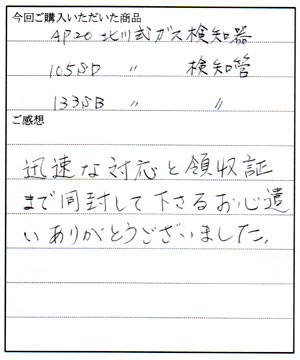 今回ご購入いただいた商品
AP20 北川式ガス検知器
105SD 〃 検知管
133SB 〃 〃
ご感想
迅速な対応と領収証
まで同封して下さるお心遣
いありがとうございました。